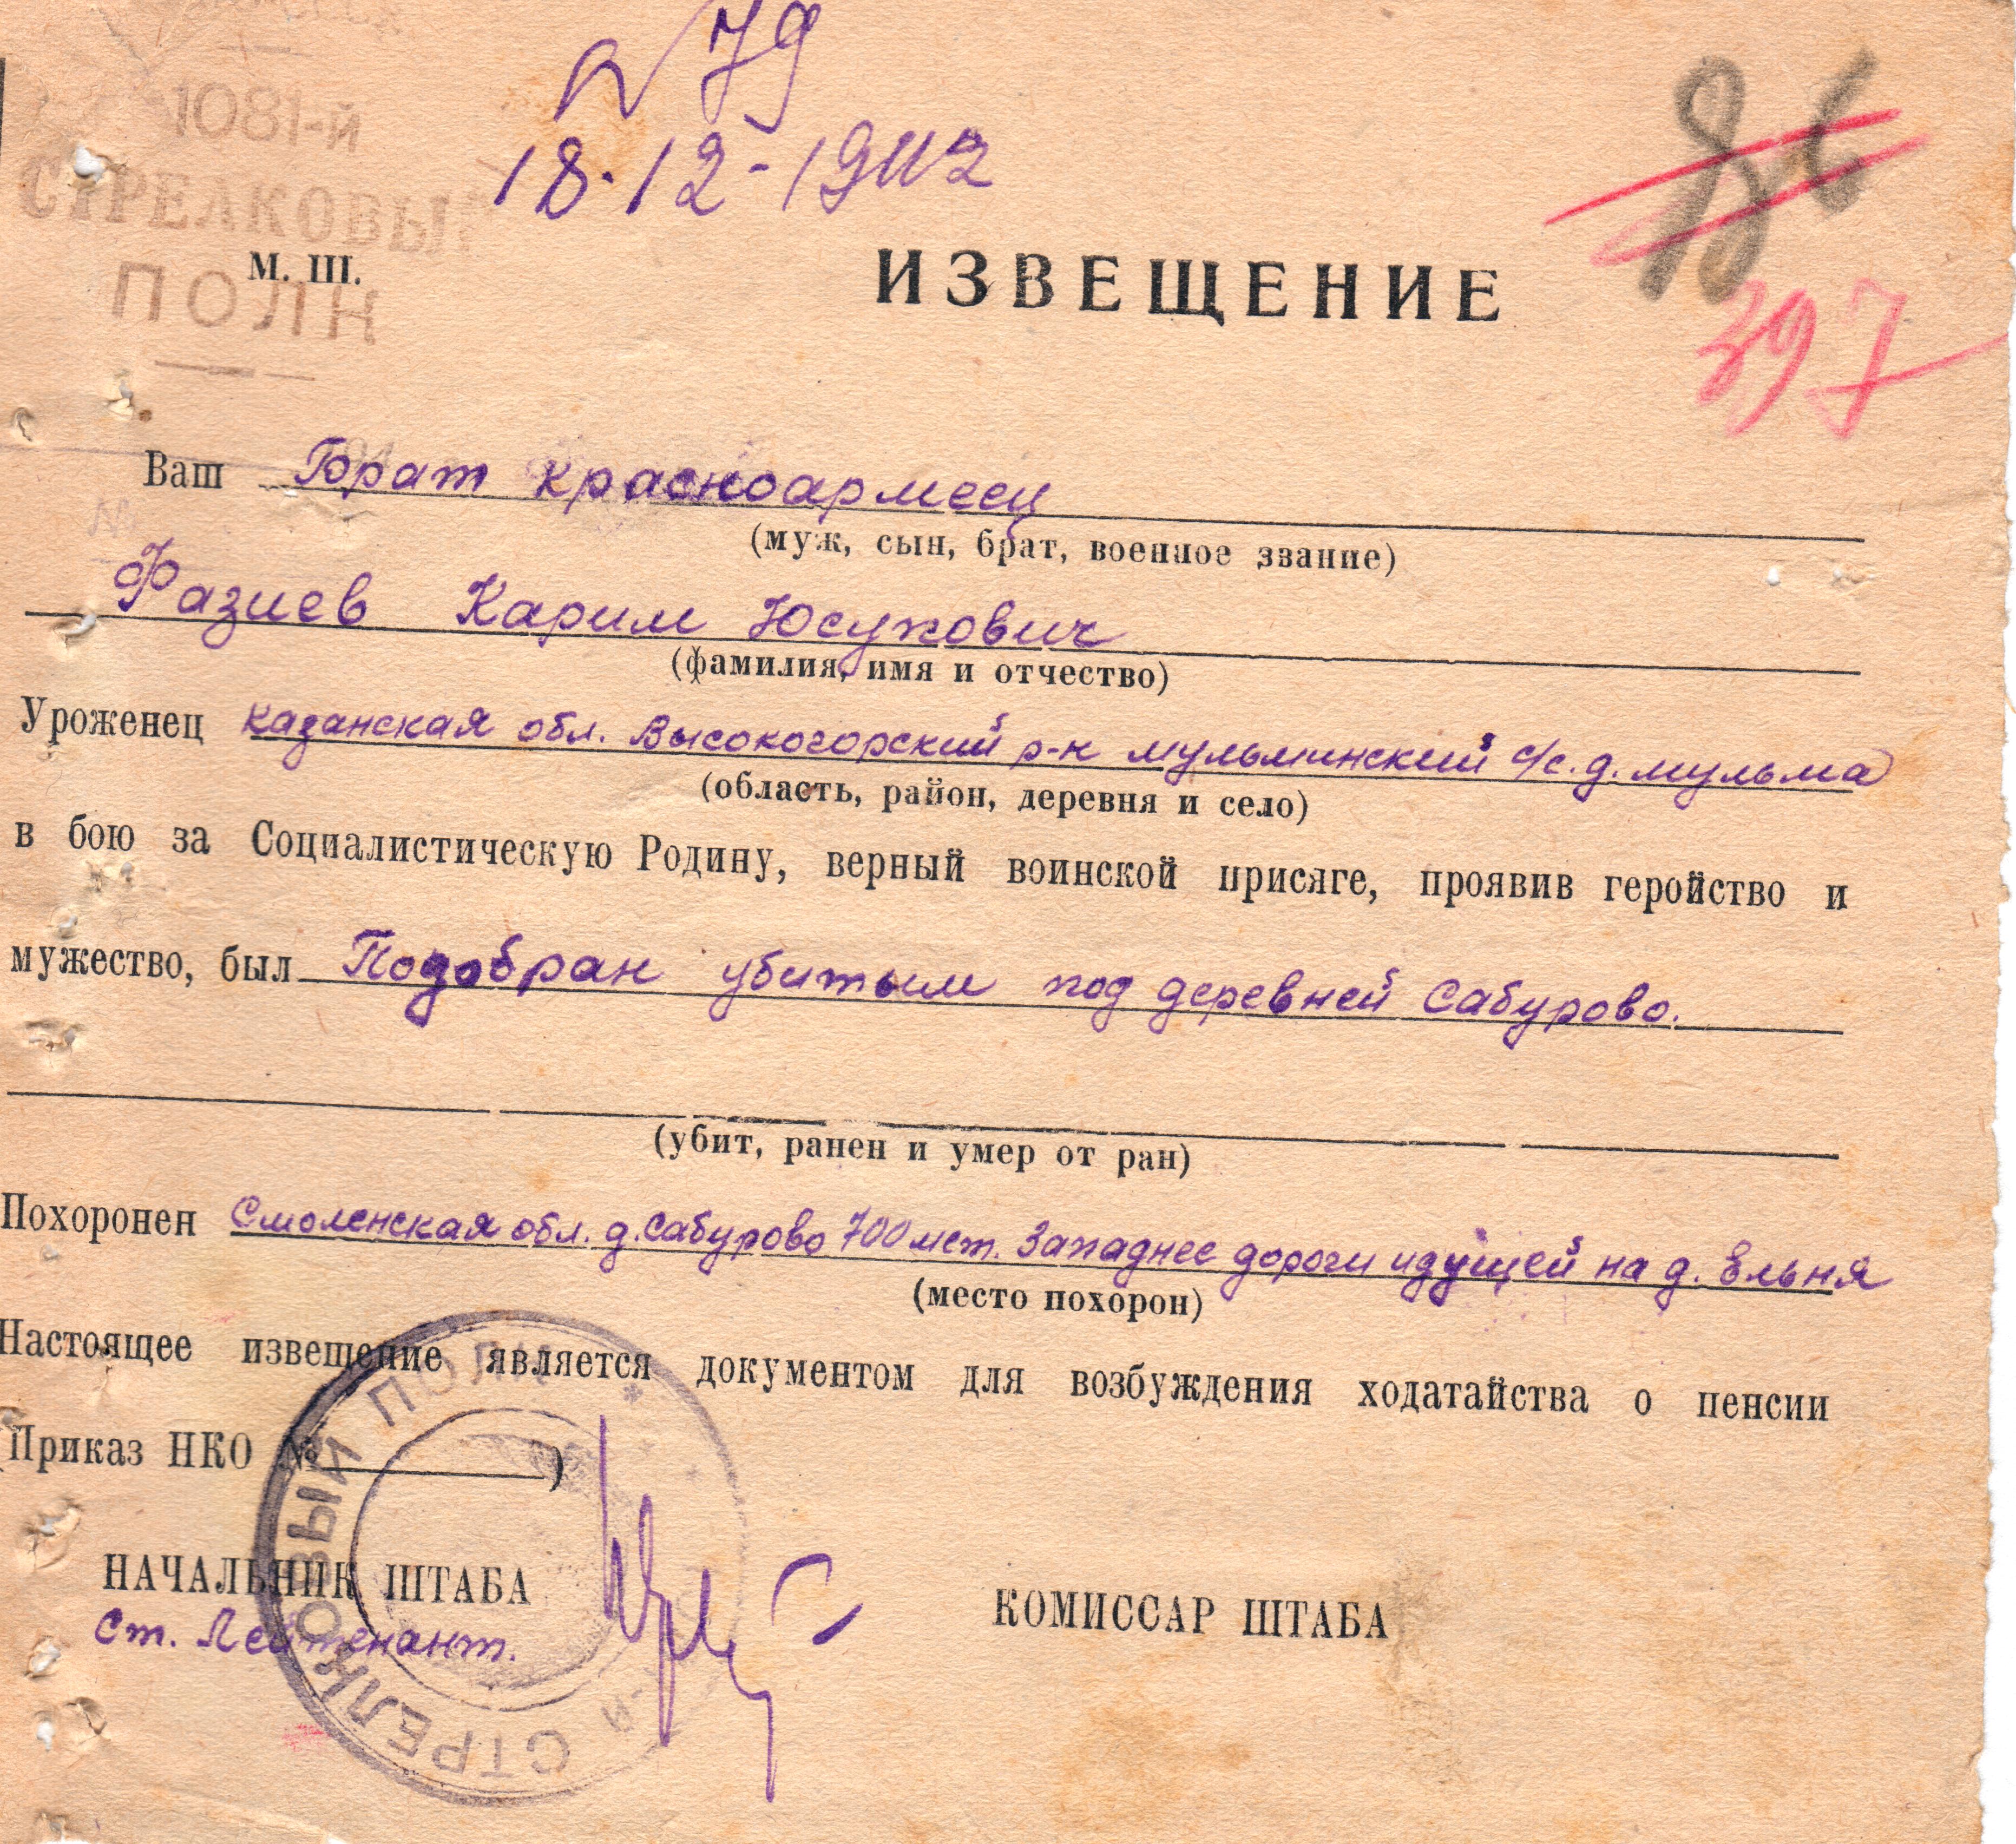 1081-й
СТРЕЛКОВЫЙ
ПОЛК
М. Ш.
N 79
18.12-1942
86
397
ИЗВЕЩЕНИЕ
Ваш Брат красноармеец
(муж, сын, брат, военное звание)
Фазиев Карим Юсупович
(фамилия, имя и отчество)
Уроженец Казанская обл. Высокогорский р-н мульминский с/с. д. мульма
(область, район, деревня и село)
в бою за Социалистическую Родину, верный воинской присяге, проявив геройство и
мужество, был Подобран убитым под деревней Сабурово.
(убит, ранен и умер от ран)
Похоронен Смоленская обл. д. Сабурово 700 мет. Западнее дороги идущей на д. Ельня
(место похорон)
Настоящее извещение является документом для возбуждения ходатайства о пенсии
(Приказ НКО № )
НАЧАЛЬНИК ШТАБА
Ст. Лейтенант.
КОМИССАР ШТАБА
СТРЕЛКОВЫЙ ПОЛК *